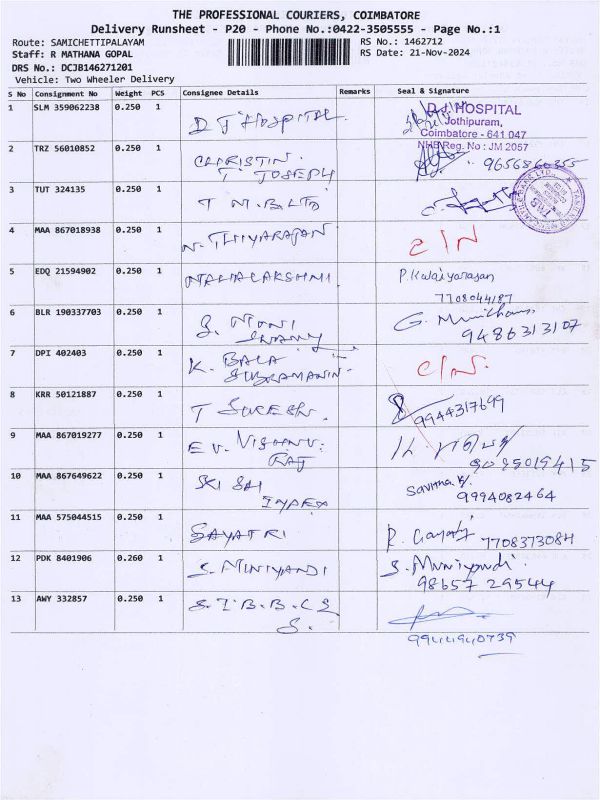 THE PROFESSIONAL COURIERS, COIMBATORE
Delivery Runsheet - P20 - Phone No.:0422-3505555 - Page No.:1
Route: SAMICHETTIPALAYAM
RS No.: 1462712
Staff: R MATHANA GOPAL
RS Date: 21-Nov-2024
DRS No.: DCJB146271201
Vehicle: Two Wheeler Delivery
S No Consignment No Weight PCS Consignee Details Remarks Seal & Signature
1 SLM 359062238 0.250 1 D J HOSPITAL
D.J. HOSPITAL
Jothipuram,
Coimbatore - 641 047
NHB Reg. No : JM 2057
2 TRZ 56010852 0.250 1 CHRISTIN. 9656860355
T. JOSEPH
3 TUT 324135 0.250 1 T M.B LTD
4 MAA 867018938 0.250 1 N. THIYARAJAN
5 EDQ 21594902 0.250 1 MAHALAKSHMI P. Kalaiyarasan
7708044187
6 BLR 190337703 0.250 1 G. MONI
SWAMY 9486313107
7 DPI 402403 0.250 1 K. BALA
SUBRAMANIN-
8 KRR 50121887 0.250 1 T SURESH. 9944317699
9 MAA 867019277 0.250 1 E V. VISHNU.
RAJ
10 MAA 867649622 0.250 1 SRI SAI Savitha
IMPEX 9994082464
11 MAA 575044515 0.250 1 GAYATRI R. Gayatri 7708373084
12 PDK 8401906 0.260 1 S. MUNIYANDI S. Muniyandi.
98657 29544
13 AWY 332857 0.250 1 S. I. B. B. C S
S.
9944940739